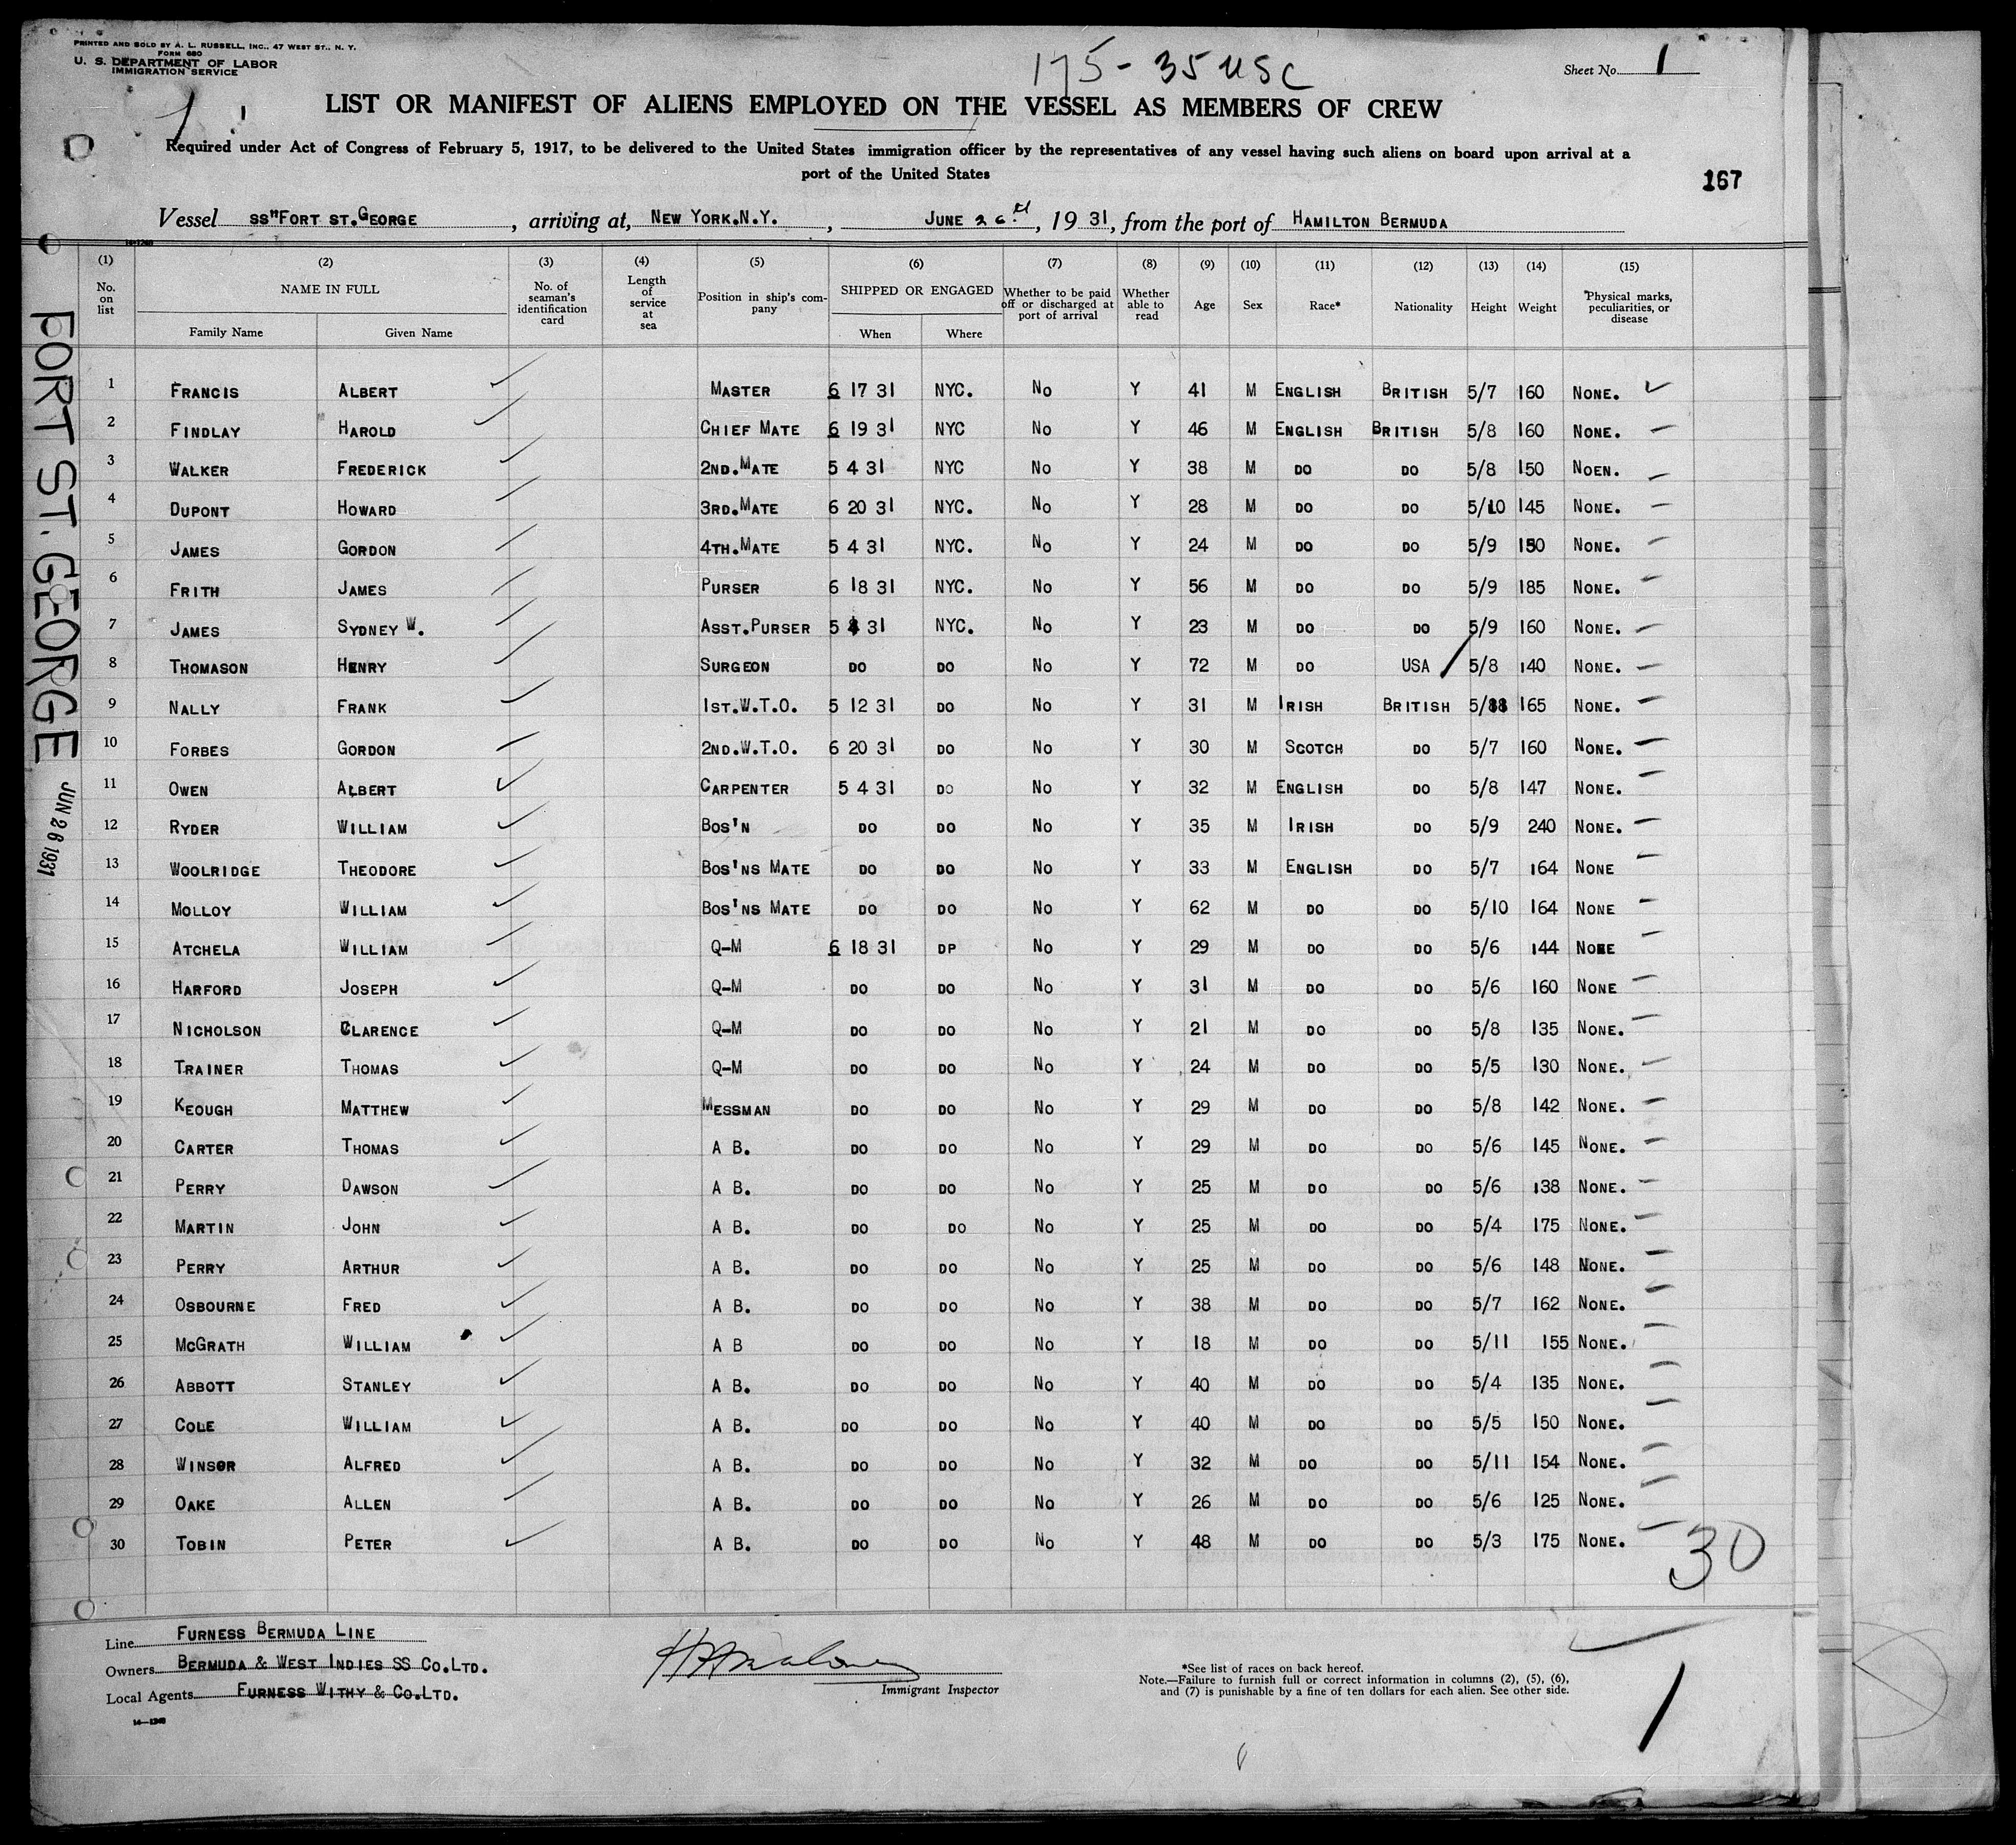 PRINTED AND SOLD BY A. L. RUSSELL, INC., 47 WEST ST., N. Y.
FORM 680
U. S. DEPARTMENT OF LABOR
IMMIGRATION SERVICE
175 - 35 USC
Sheet No. 1
1
LIST OR MANIFEST OF ALIENS EMPLOYED ON THE VESSEL AS MEMBERS OF CREW
Required under Act of Congress of February 5, 1917, to be delivered to the United States immigration officer by the representatives of any vessel having such aliens on board upon arrival at a
port of the United States
167
Vessel SS"FORT ST.GEORGE, arriving at, NEW YORK.N.Y., JUNE 26th, 1931, from the port of HAMILTON BERMUDA
14-1240
(1) (2) (3) (4) (5) (6) (7) (8) (9) (10) (11) (12) (13) (14) (15)
No. on list NAME IN FULL Family Name Given Name No. of seaman's identification card Length of service at sea Position in ship's company SHIPPED OR ENGAGED When Where Whether to be paid off or discharged at port of arrival Whether able to read Age Sex Race* Nationality Height Weight Physical marks, peculiarities, or disease
1 FRANCIS ALBERT MASTER 6 17 31 NYC. No Y 41 M ENGLISH BRITISH 5/7 160 NONE.
2 FINDLAY HAROLD CHIEF MATE 6 19 31 NYC No Y 46 M ENGLISH BRITISH 5/8 160 NONE.
3 WALKER FREDERICK 2ND.MATE 5 4 31 NYC No Y 38 M DO DO 5/8 150 NOEN.
4 DUPONT HOWARD 3RD.MATE 6 20 31 NYC. No Y 28 M DO DO 5/10 145 NONE.
5 JAMES GORDON 4TH.MATE 5 4 31 NYC. No Y 24 M DO DO 5/9 150 NONE.
6 FRITH JAMES PURSER 6 18 31 NYC. No Y 56 M DO DO 5/9 185 NONE.
7 JAMES SYDNEY W. ASST.PURSER 5 4 31 NYC. No Y 23 M DO DO 5/9 160 NONE.
8 THOMASON HENRY SURGEON DO DO No Y 72 M DO USA 5/8 140 NONE.
9 NALLY FRANK 1ST.W.T.O. 5 12 31 DO No Y 31 M IRISH BRITISH 165 NONE.
10 FORBES GORDON 2ND.W.T.O. 6 20 31 DO No Y 30 M SCOTCH DO 5/7 160 NONE.
11 OWEN ALBERT CARPENTER 5 4 31 DO No Y 32 M ENGLISH DO 5/8 147 NONE.
12 RYDER WILLIAM BOS'N DO DO No Y 35 M IRISH DO 5/9 240 NONE.
13 WOOLRIDGE THEODORE BOS'NS MATE DO DO No Y 33 M ENGLISH DO 5/7 164 NONE
14 MOLLOY WILLIAM BOS'NS MATE DO DO No Y 62 M DO DO 5/10 164 NONE
15 ATCHELA WILLIAM Q-M 6 18 31 DP No Y 29 M DO DO 5/6 144 NONE
16 HARFORD JOSEPH Q-M DO DO No Y 31 M DO DO 5/6 160 NONE
17 NICHOLSON CLARENCE Q-M DO DO No Y 21 M DO DO 5/8 135 NONE.
18 TRAINER THOMAS Q-M DO DO No Y 24 M DO DO 5/5 130 NONE.
19 KEOUGH MATTHEW MESSMAN DO DO No Y 29 M DO DO 5/8 142 NONE.
20 CARTER THOMAS A B. DO DO No Y 29 M DO DO 5/6 145 NONE.
21 PERRY DAWSON A B. DO DO No Y 25 M DO DO 5/6 138 NONE.
22 MARTIN JOHN A B. DO DO No Y 25 M DO DO 5/4 175 NONE.
23 PERRY ARTHUR A B. DO DO No Y 25 M DO DO 5/6 148 NONE.
24 OSBOURNE FRED A B. DO DO No Y 38 M DO DO 5/7 162 NONE.
25 MCGRATH WILLIAM A B DO DO No Y 18 M DO DO 5/11 155 NONE.
26 ABBOTT STANLEY A B. DO DO No Y 40 M DO DO 5/4 135 NONE.
27 COLE WILLIAM A B. DO DO No Y 40 M DO DO 5/5 150 NONE.
28 WINSOR ALFRED A B. DO DO No Y 32 M DO DO 5/11 154 NONE.
29 OAKE ALLEN A B. DO DO No Y 26 M DO DO 5/6 125 NONE.
30 TOBIN PETER A B. DO DO No Y 48 M DO DO 5/3 175 NONE.
30
FORT ST. GEORGE JUN 26 1931
Line FURNESS BERMUDA LINE
Owners BERMUDA & WEST INDIES SS CO.LTD.
Local Agents FURNESS WITHY & CO.LTD.
14-1240
Immigrant Inspector
*See list of races on back hereof.
Note.—Failure to furnish full or correct information in columns (2), (5), (6),
and (7) is punishable by a fine of ten dollars for each alien. See other side.
1